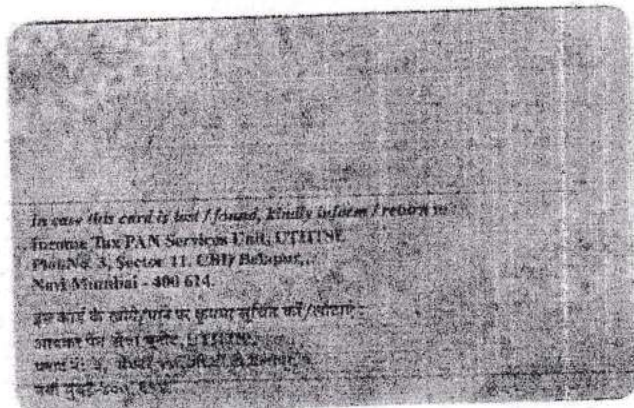 In case this card is lost / found, kindly inform / return to :
Income Tax PAN Services Unit, UTIITSL
Plot No. 3, Sector 11, CBD Belapur,
Navi Mumbai - 400 614.
इस कार्ड के खोने/पाने पर कृपया सूचित करें/लौटाएं :
आयकर पैन सेवा यूनीट, UTIITSL
प्लाट नं: ३, सेक्टर ११, सी.बी.डी. बेलापूर,
नवी मुंबई-४०० ६१४